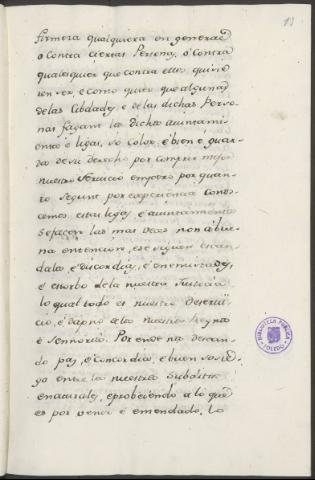 13
firmeza qualquiera en general
o Contra ciertas Personas, o Contra
qualesquier que contra ellos quisie
ren ver, e como quier que algunas
de las Cibdades, e de las dichas Perso-
nas façan la dicha aiuntami-
ento e ligas, so color, e bien e guar-
da de su derecho por complir mejor
nuestro servicio empero por quan-
to segunt por experiencia Conos-
cemos estas ligas, e aiuntamientos
se façen las mas veces non a bue-
na entencion, e se siguen escan-
dalos e discordias, e enemistades,
e estorbo de la nuestra Justicia
lo qual todo es nuestro deservi-
cio, e dapno de los nuestros Reynos
e Sennorios. Por ende nos desean-
do paz, e Concordia, e buen sosie-
go entre los nuestros Subditos
e naturales, e probeiendo a lo que
es por venir e emendado, lo
BIBLIOTECA PUBLICA
TOLEDO